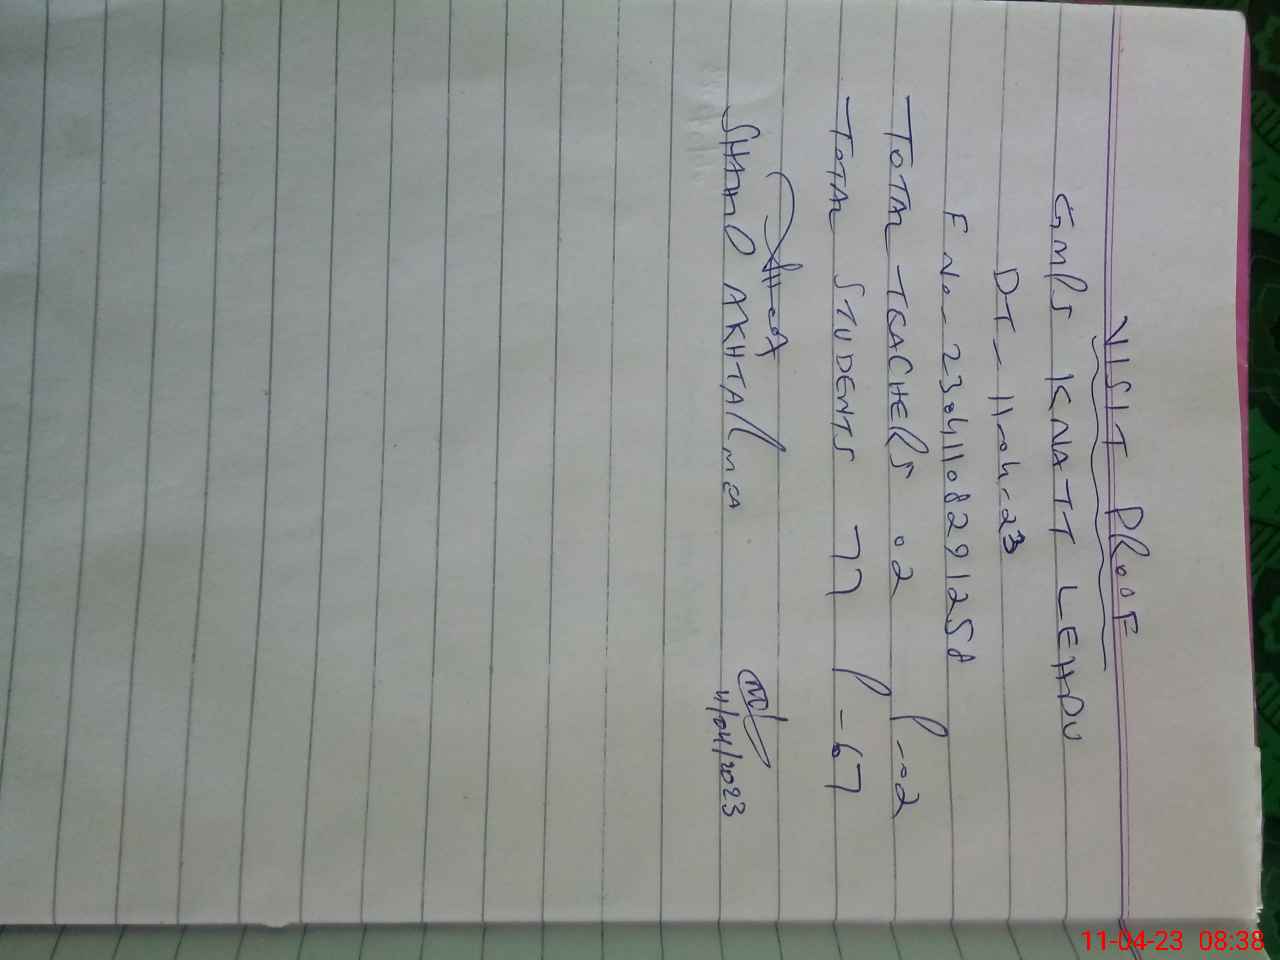 VISIT PROOF
GMPS KNATT LEHDU
DT - 11-04-23
F No - 23041108291258
TOTAL TEACHERS 02 P-02
TOTAL STUDENTS 77 P-67
11/04/2023
AKHTAR
11-04-23 08:38